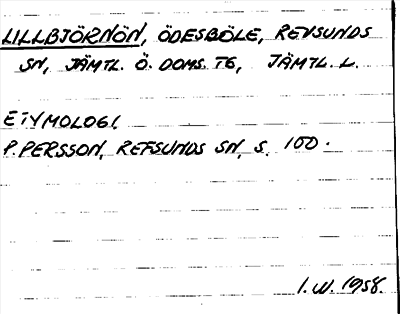 LILLBJÖRNÖN, ÖDESBÖLE, REVSUNDS
SN, JÄMTL. Ö. DOMS. TG, JÄMTL. L.
ETYMOLOGI.
P. PERSSON, REFSUNDS SN, S. 100.
I. W. 1958.